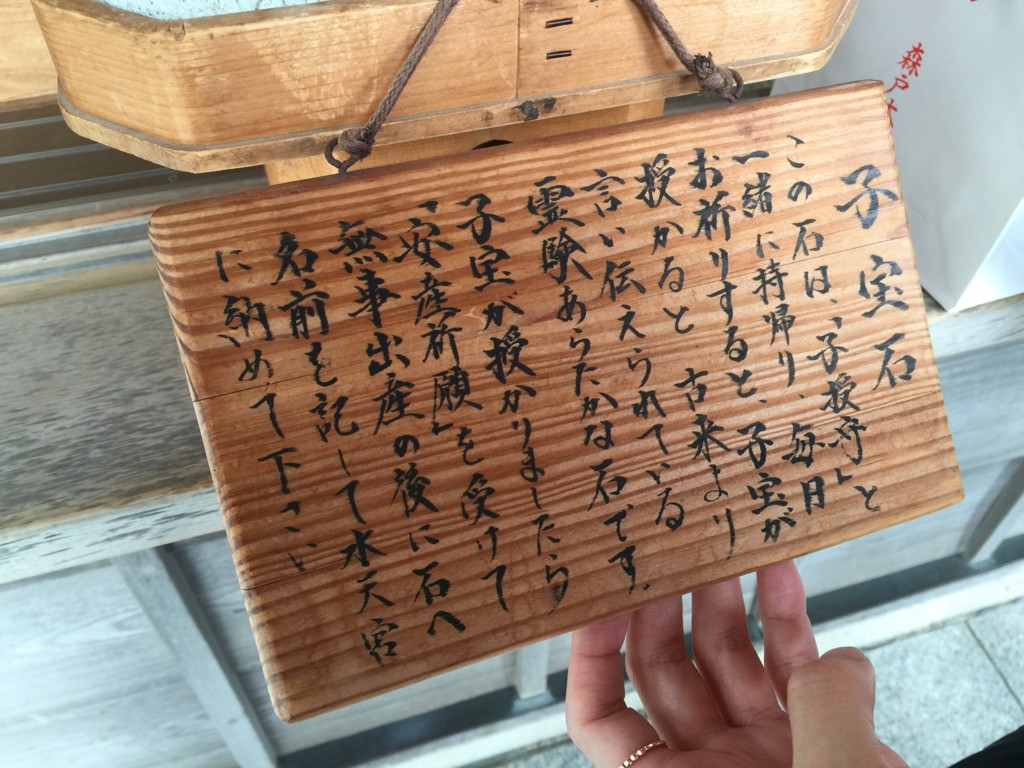 子宝石
この石は、「子授守」と
一緒に持帰り、毎月
お祈りすると、子宝が
授かると 古来より
言い伝えられている
霊験あらたかな石です。
子宝が授かりましたら
「安産祈願」を受けて
無事出産の後に石へ
名前を記して水天宮
に納めて下さい
森戸